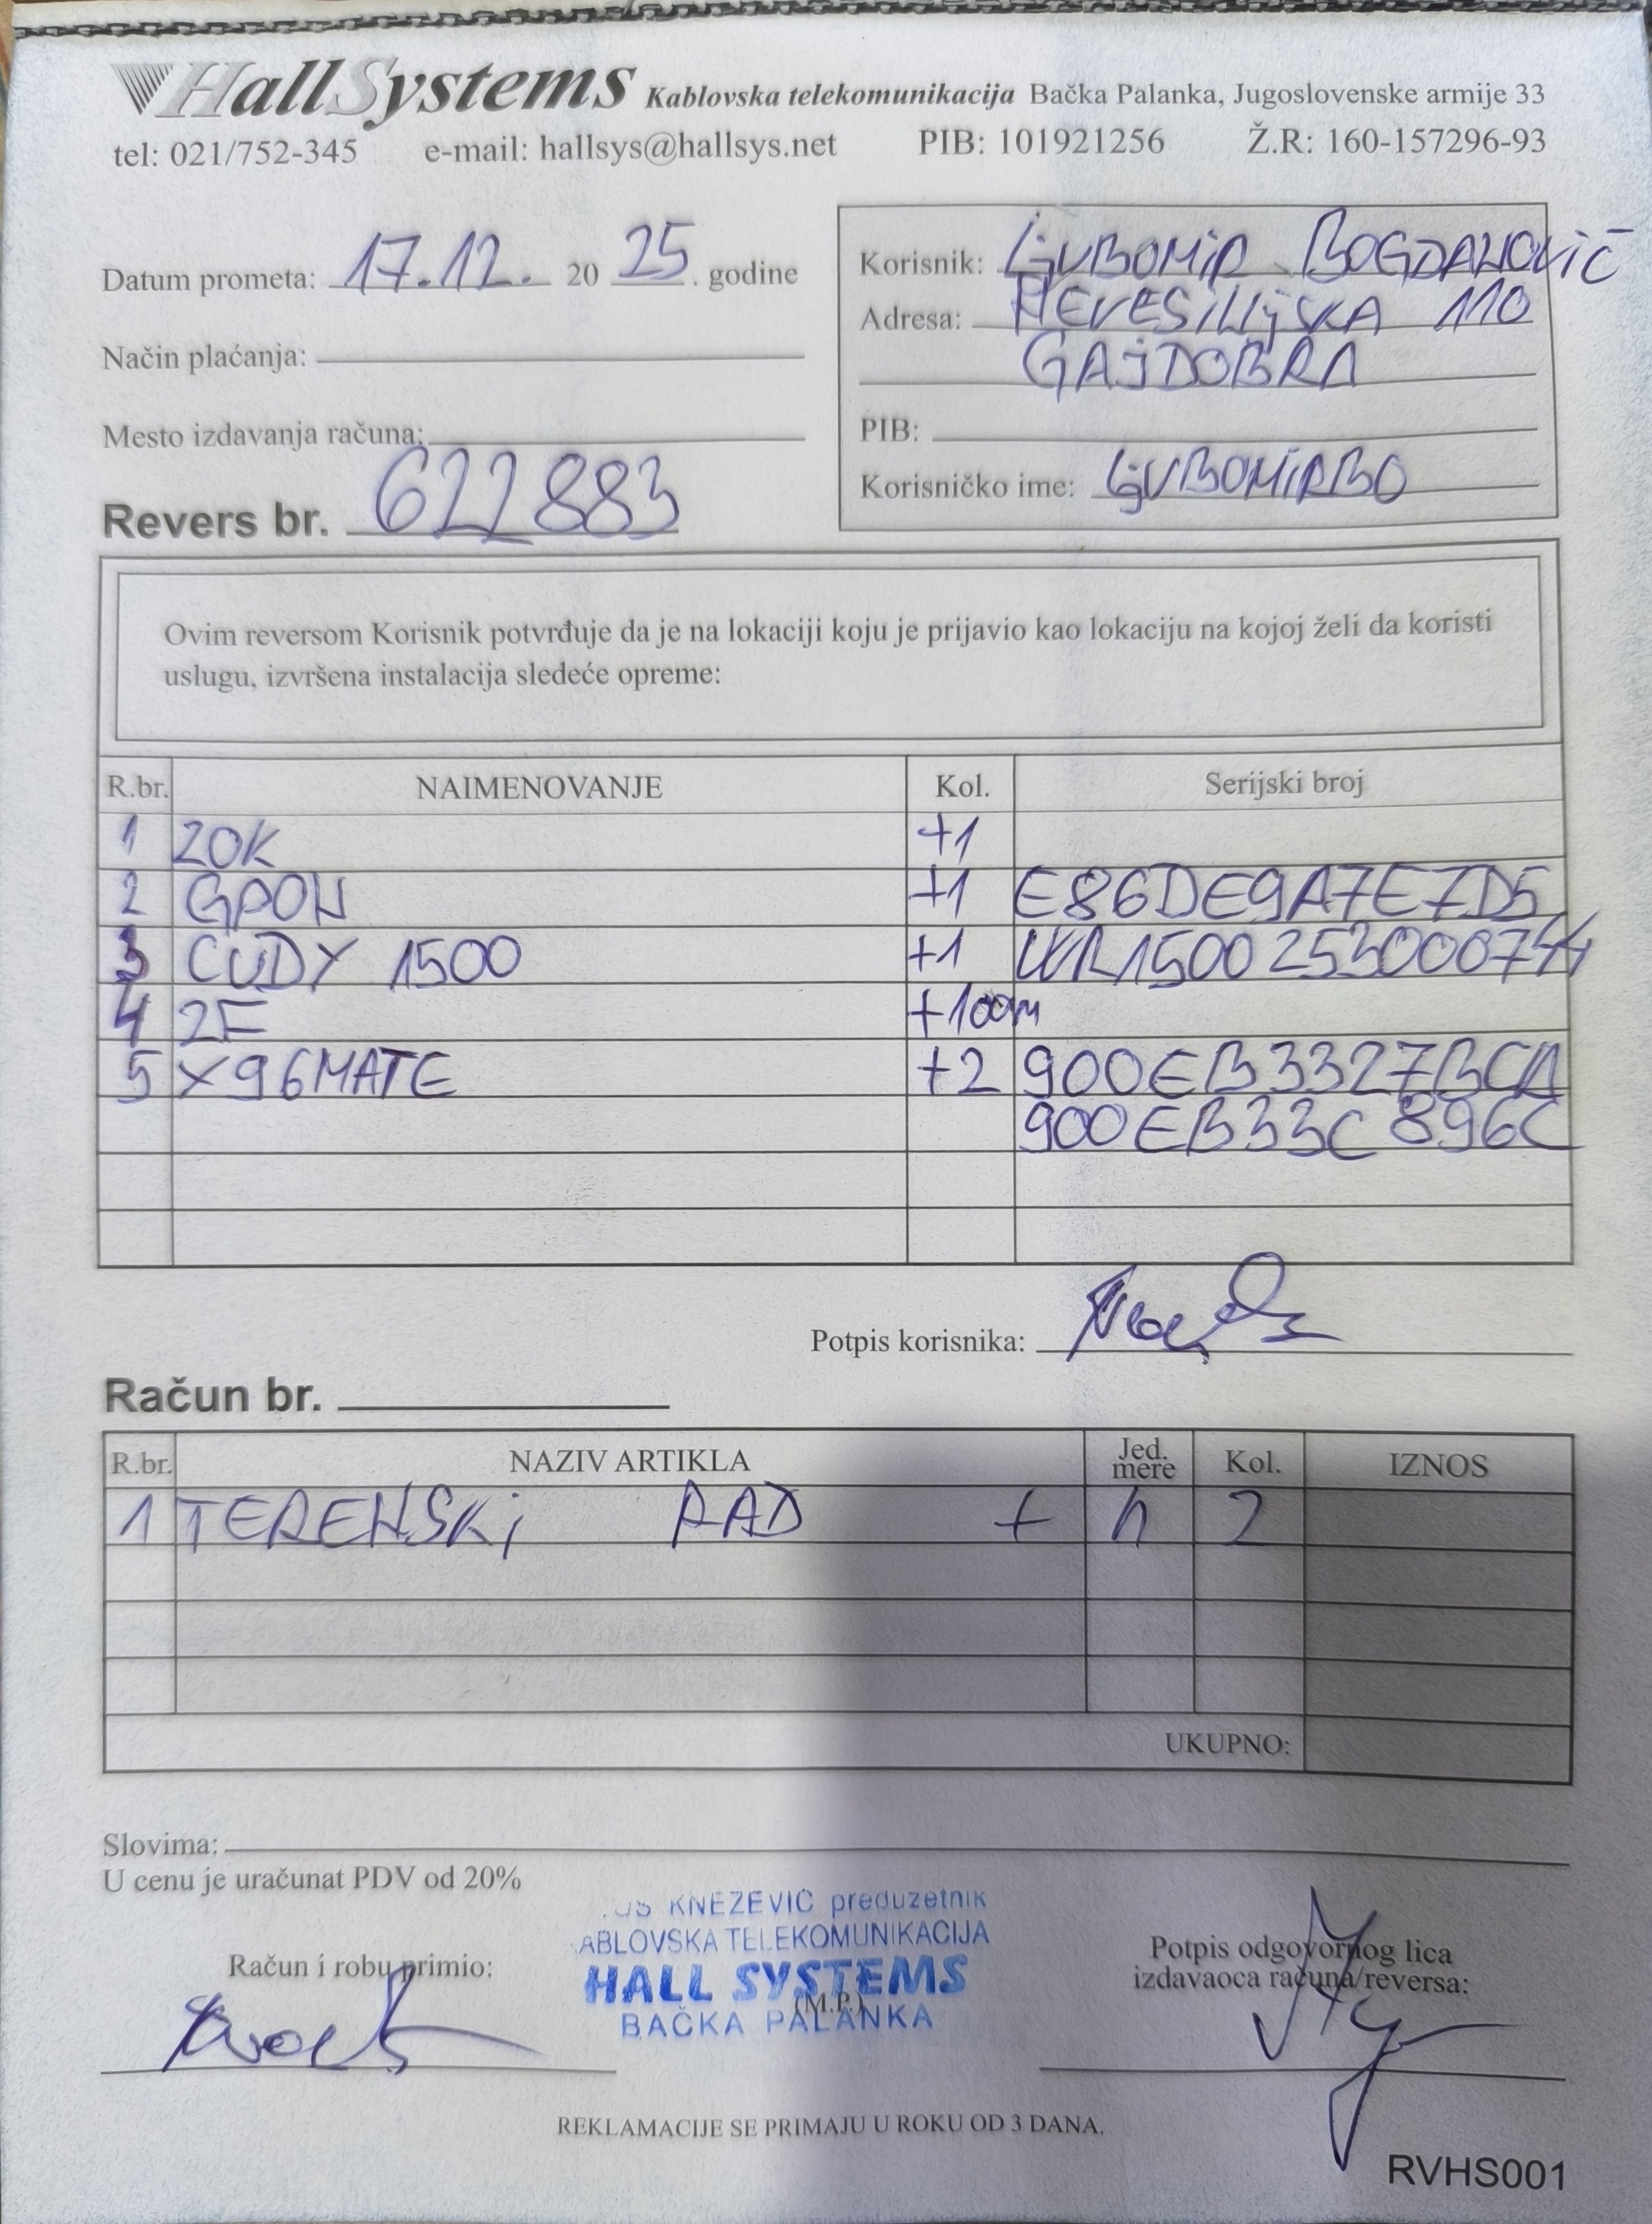 HallSystems Kablovska telekomunikacija Bačka Palanka, Jugoslovenske armije 33
tel: 021/752-345 e-mail: hallsys@hallsys.net PIB: 101921256 Ž.R: 160-157296-93
Datum prometa: 17.12. 20 25. godine
Način plaćanja:
Mesto izdavanja računa:
Revers br. 622883
Korisnik: LjUBOMIR BOGDANOVIĆ
Adresa: NEVESINjSKA 110
GAJDOBRA
PIB:
Korisničko ime: LjUBOMIRBO
Ovim reversom Korisnik potvrđuje da je na lokaciji koju je prijavio kao lokaciju na kojoj želi da koristi
uslugu, izvršena instalacija sledeće opreme:
R.br. NAIMENOVANJE Kol. Serijski broj
1 ZOK +1
2 GPON +1 E86DE9A7E7D5
3 CUDY 1500 +1 WR1500253000744
4 2F +100m
5 X96MATE +2 900EB3327BCA
900EB33C896C
Potpis korisnika:
Račun br.
R.br. NAZIV ARTIKLA Jed. mere Kol. IZNOS
1 TERENSKI RAD + h 2
UKUPNO:
Slovima:
U cenu je uračunat PDV od 20%
KNEZEVIC preduzetnik
ABLOVSKA TELEKOMUNIKACIJA
HALL SYSTEMS
(M.P.)
BAČKA PALANKA
Račun i robu primio:
Potpis odgovornog lica
izdavaoca računa/reversa:
REKLAMACIJE SE PRIMAJU U ROKU OD 3 DANA.
RVHS001